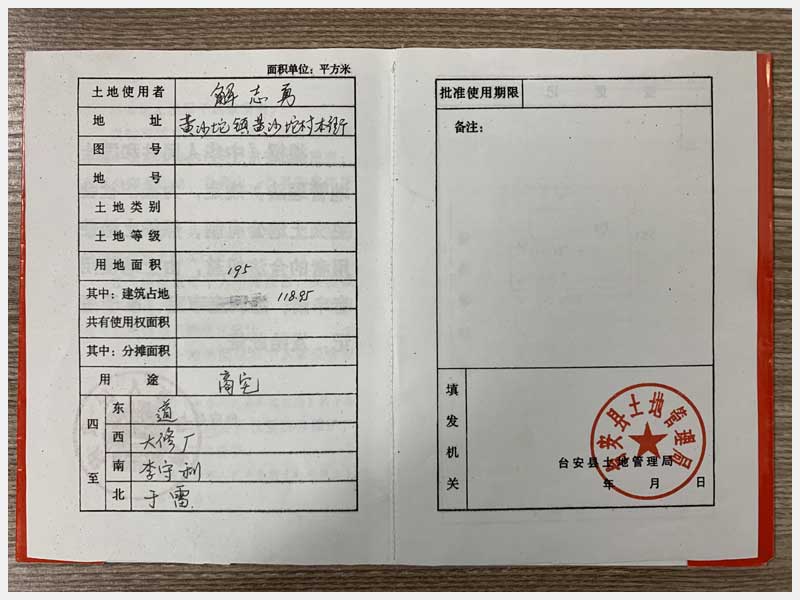 面积单位：平方米
土地使用者 解志勇
地 址 黄沙坨镇黄沙坨村本街
图 号
地 号
土地类别
土地等级
用地面积 195
其中：建筑占地 118.95
共有使用权面积
其中：分摊面积
用 途 商宅
四至
东 道
西 大修厂
南 李守利
北 于雷
批准使用期限
备注：
填发机关
台安县土地管理局
台安县土地管理局
年 月 日